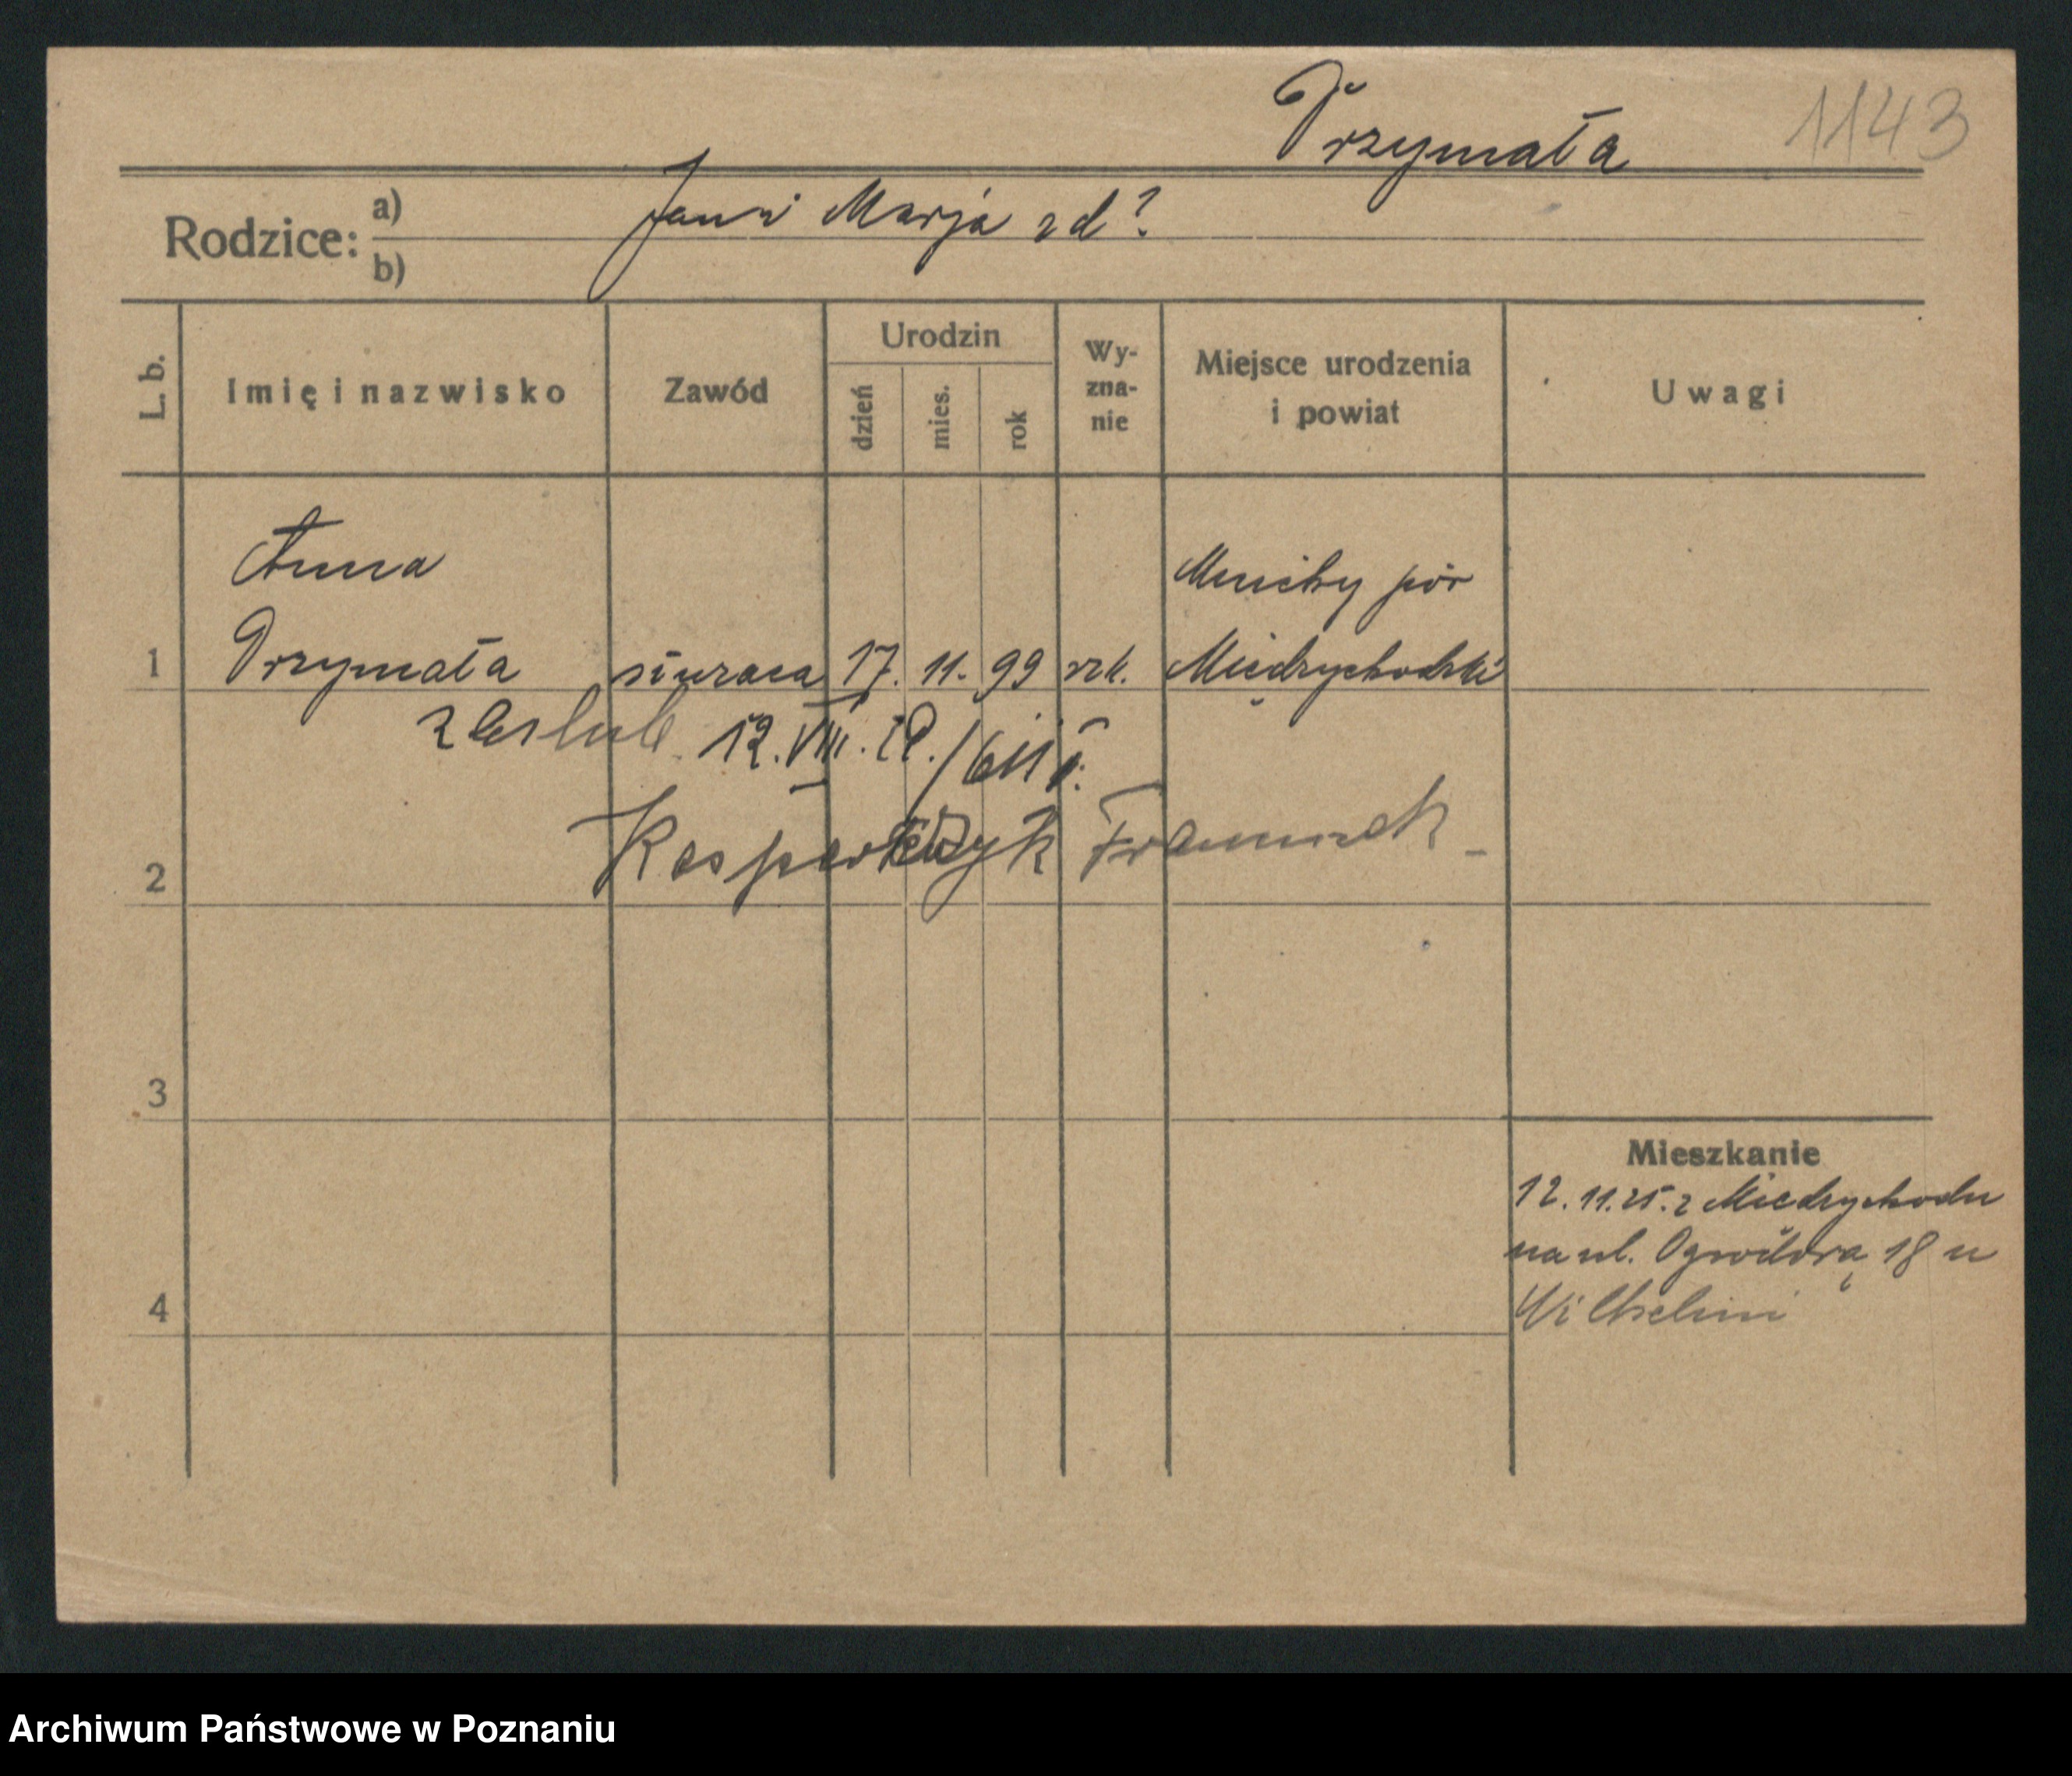 Przymała
1143
Rodzice:
a) Jan i Marja z d?
b)
L. b.
Imię i nazwisko
Zawód
Urodzin
dzień
mies.
rok
Wy-
zna-
nie
Miejsce urodzenia
i powiat
Uwagi
Anna
Mnichy pow
1 Przymała służąca 17. 11. 99 rzk. Międzychodzki
zaślub. 12. VIII.
2 Kasperczyk Franciszek
3
Mieszkanie
12. 11. 25. z Międzychodu
na ul. Ogrodową 18 u
4 Wilhelmi
Archiwum Państwowe w Poznaniu